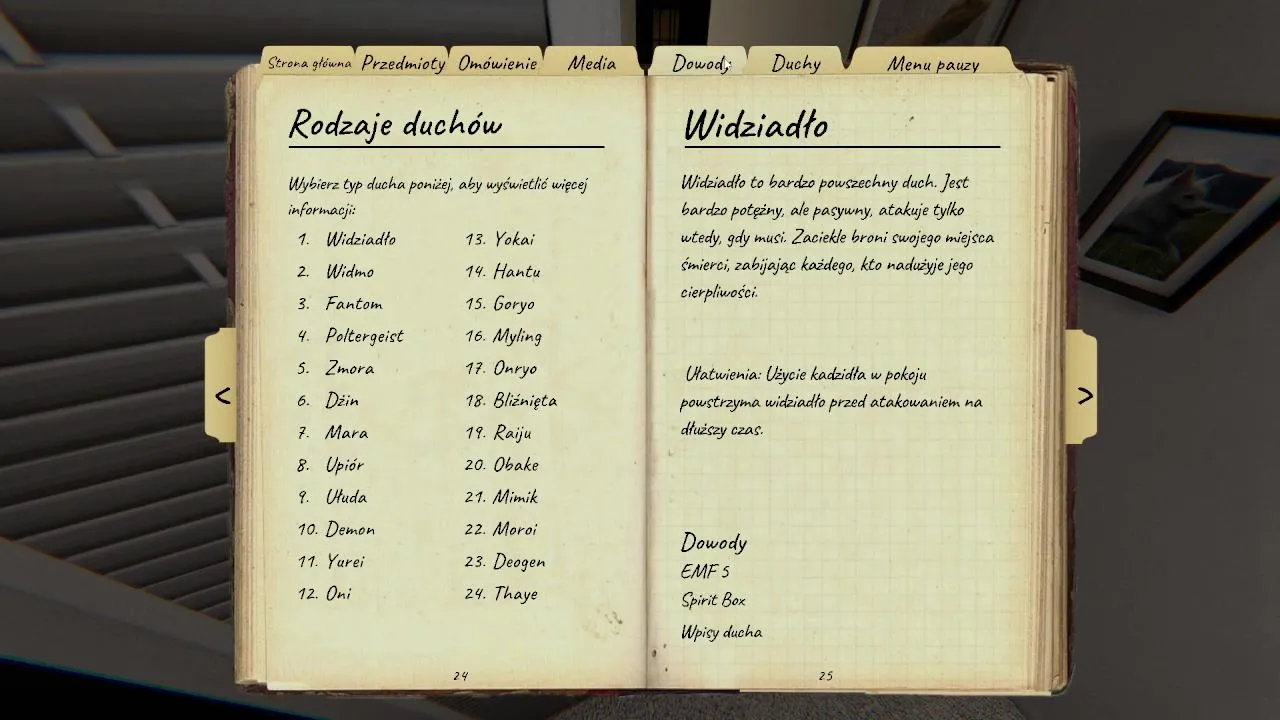 Strona główna Przedmioty Omówienie Media Dowody Duchy Menu pauzy
Rodzaje duchów
Wybierz typ ducha poniżej, aby wyświetlić więcej
informacji:
1. Widziadło
2. Widmo
3. Fantom
4. Poltergeist
5. Zmora
6. Dżin
7. Mara
8. Upiór
9. Ułuda
10. Demon
11. Yurei
12. Oni
13. Yokai
14. Hantu
15. Goryo
16. Myling
17. Onryo
18. Bliźnięta
19. Raiju
20. Obake
21. Mimik
22. Moroi
23. Deogen
24. Thaye
24
Widziadło
Widziadło to bardzo powszechny duch. Jest
bardzo potężny, ale pasywny, atakuje tylko
wtedy, gdy musi. Zaciekle broni swojego miejsca
śmierci, zabijając każdego, kto nadużyje jego
cierpliwości.
Ułatwienia: Użycie kadzidła w pokoju
powstrzyma widziadło przed atakowaniem na
dłuższy czas.
Dowody
EMF 5
Spirit Box
Wpisy ducha
25
<
>